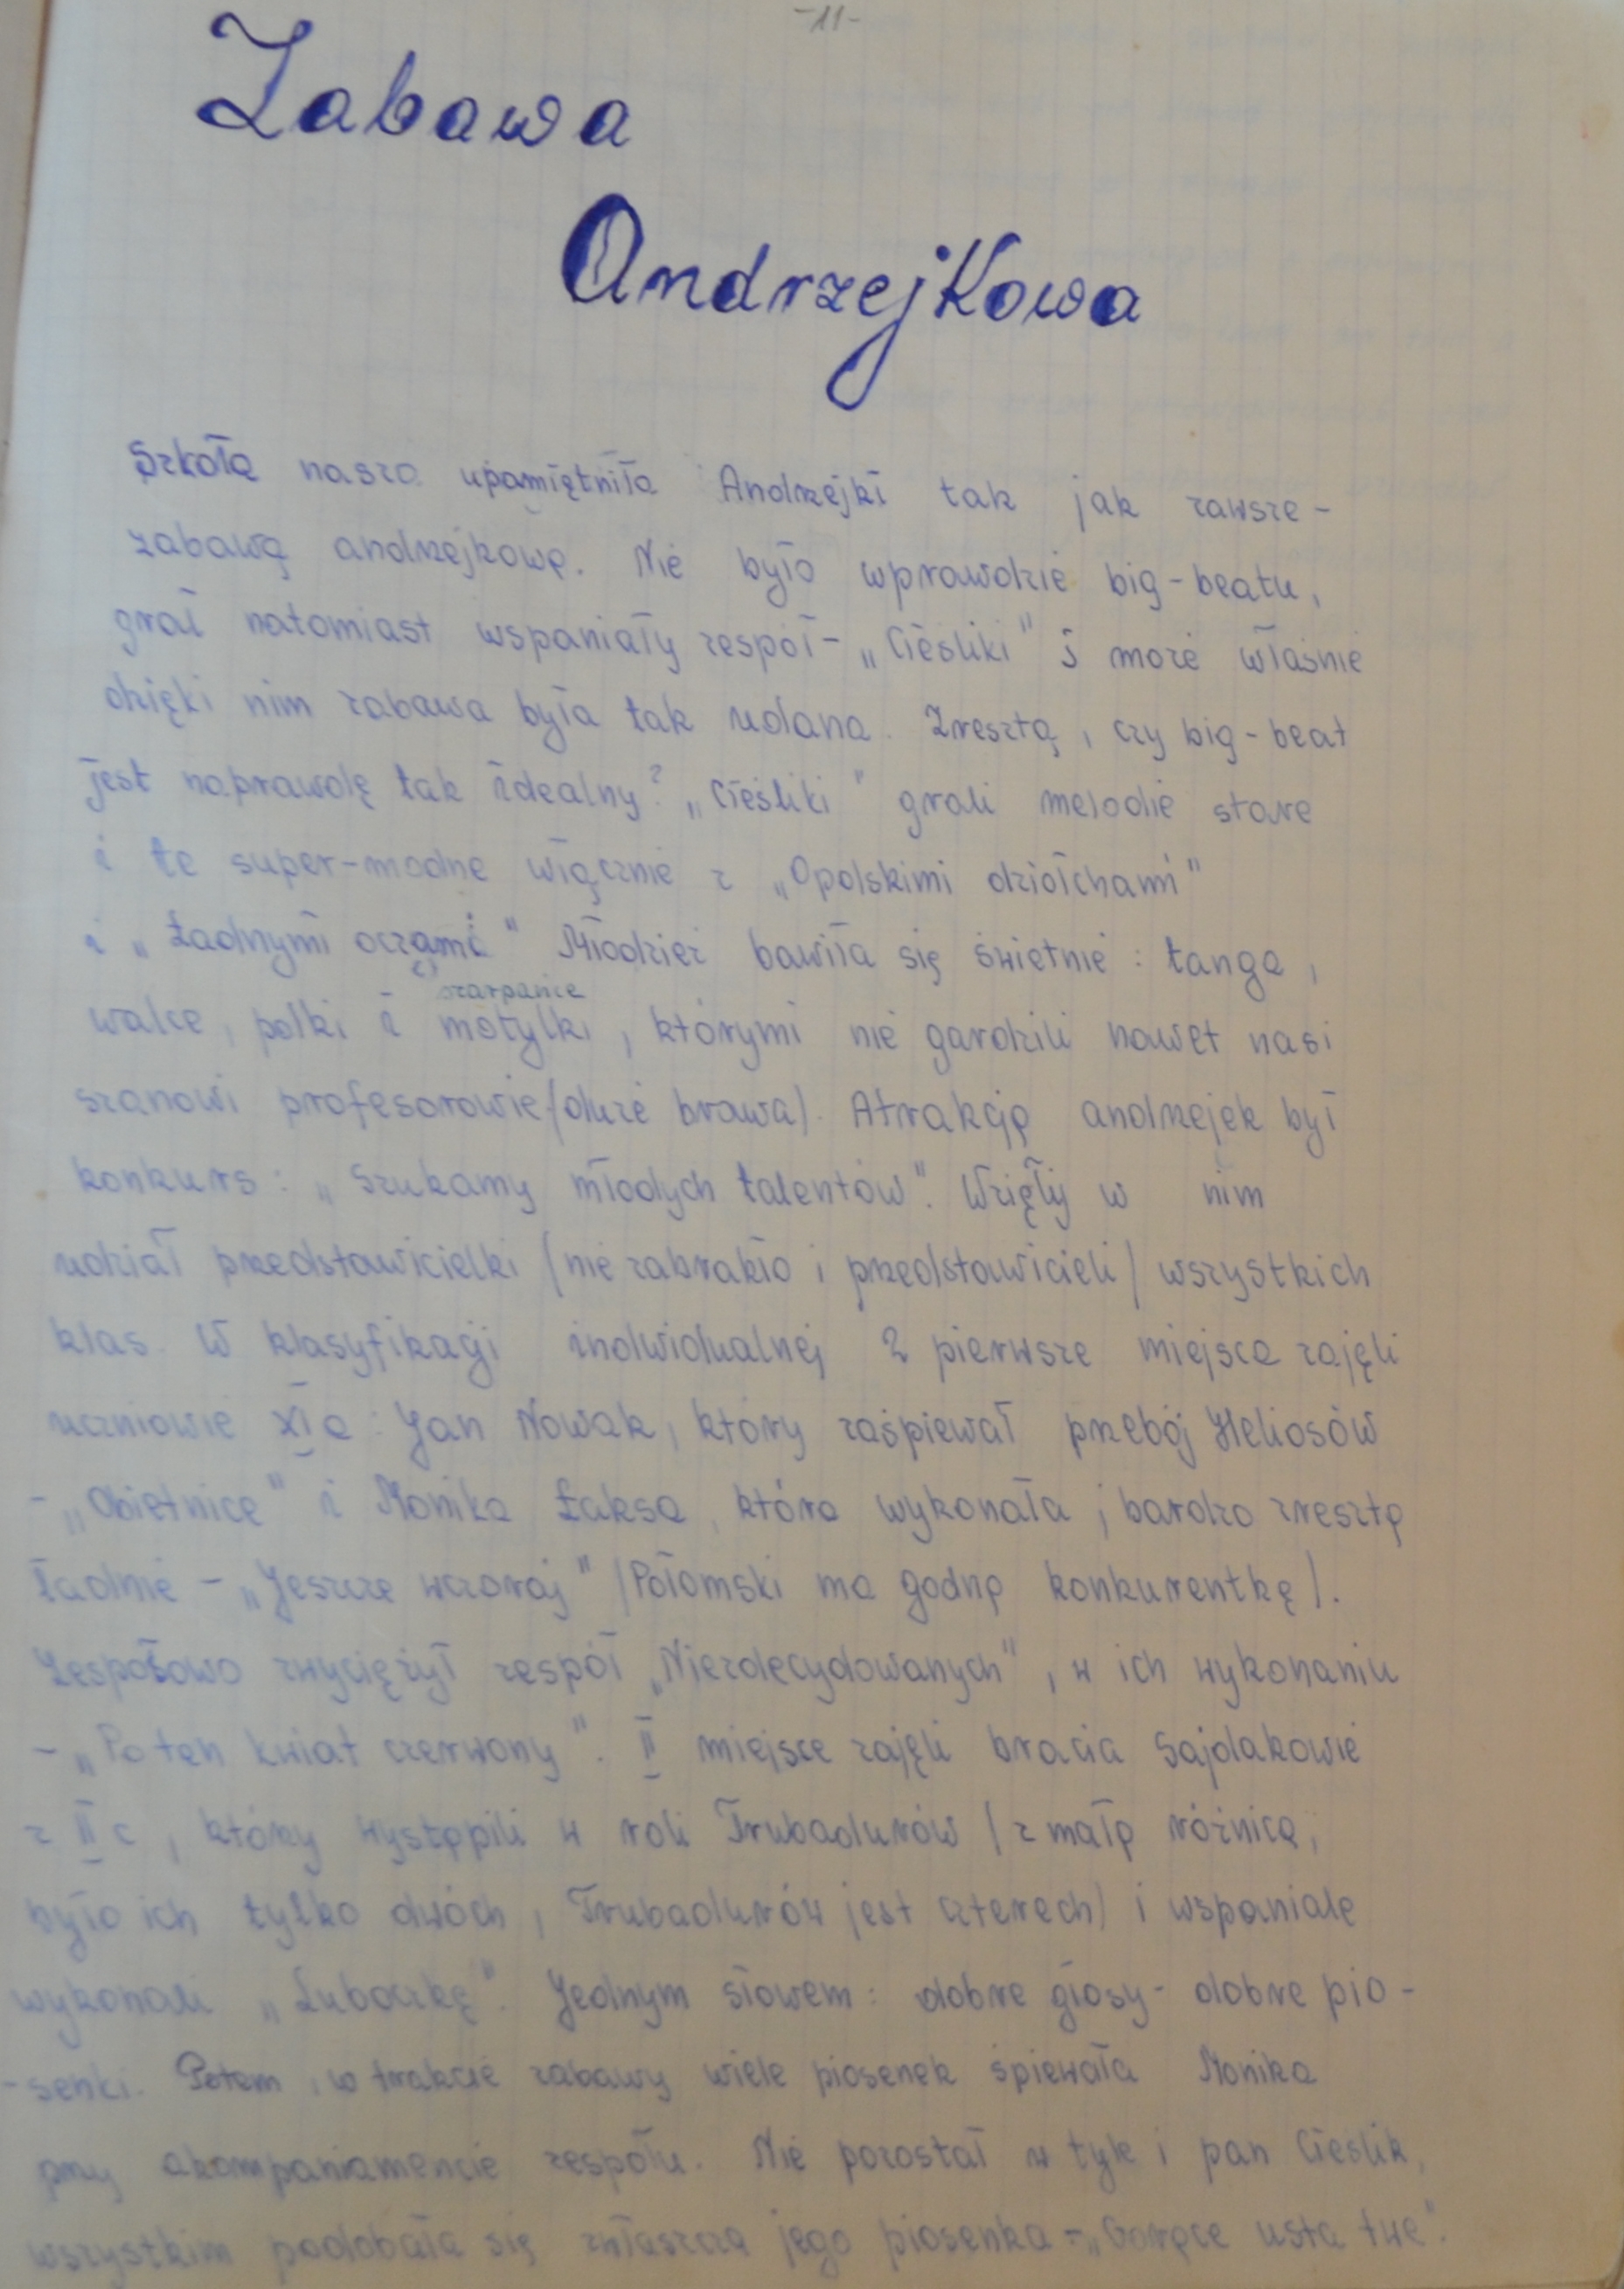 -11-
Zabawa
Andrzejkowa
Szkoła nasza upamiętniła Andrzejki tak jak zawsze -
zabawą andrzejkową. Nie było wprawdzie big-beatu,
grał natomiast wspaniały zespół - „Cieśliki" i może właśnie
dzięki nim zabawa była tak udana. Zresztą, czy big-beat
jest naprawdę tak idealny? „Cieśliki" grali melodie stare
i te super-modne włącznie z „Opolskimi dziołchami"
i „Ładnymi oczami" Młodzież bawiła się świetnie: tanga,
szarpanie
walce, polki i motylki, którymi nie gardzili nawet nasi
szanowi profesorowie (duże brawa). Atrakcją andrzejek był
konkurs: „Szukamy młodych talentów". Wzięły w nim
udział przedstawicielki (nie zabrakło i przedstawicieli) wszystkich
klas. W klasyfikacji indwidualnej 2 pierwsze miejsca zajęli
uczniowie XI a: Jan Nowak, który zaśpiewał przebój Heliosów
- „Obietnice" i Monika Łaksa, która wykonała, bardzo zresztą
ładnie - „Jeszcze wczoraj" (Połomski ma godną konkurentkę).
Zespołowo zwyciężył zespół „Niezdecydowanych", w ich wykonaniu
- „Po ten kwiat czerwony". II miejsce zajęli bracia Sajdakowie
z II c, którzy wystąpili w roli Trubadurów (z małą różnicą,
było ich tylko dwóch, Trubadurów jest czterech) i wspaniale
wykonali „Lubaczkę". Jednym słowem: dobre głosy - dobre pio-
-senki. Potem, w trakcie zabawy wiele piosenek śpiewała Monika
przy akompaniamencie zespołu. Nie pozostał w tyle i pan Cieślik,
wszystkim podobała się zwłaszcza jego piosenka - „Gorące usta twe".